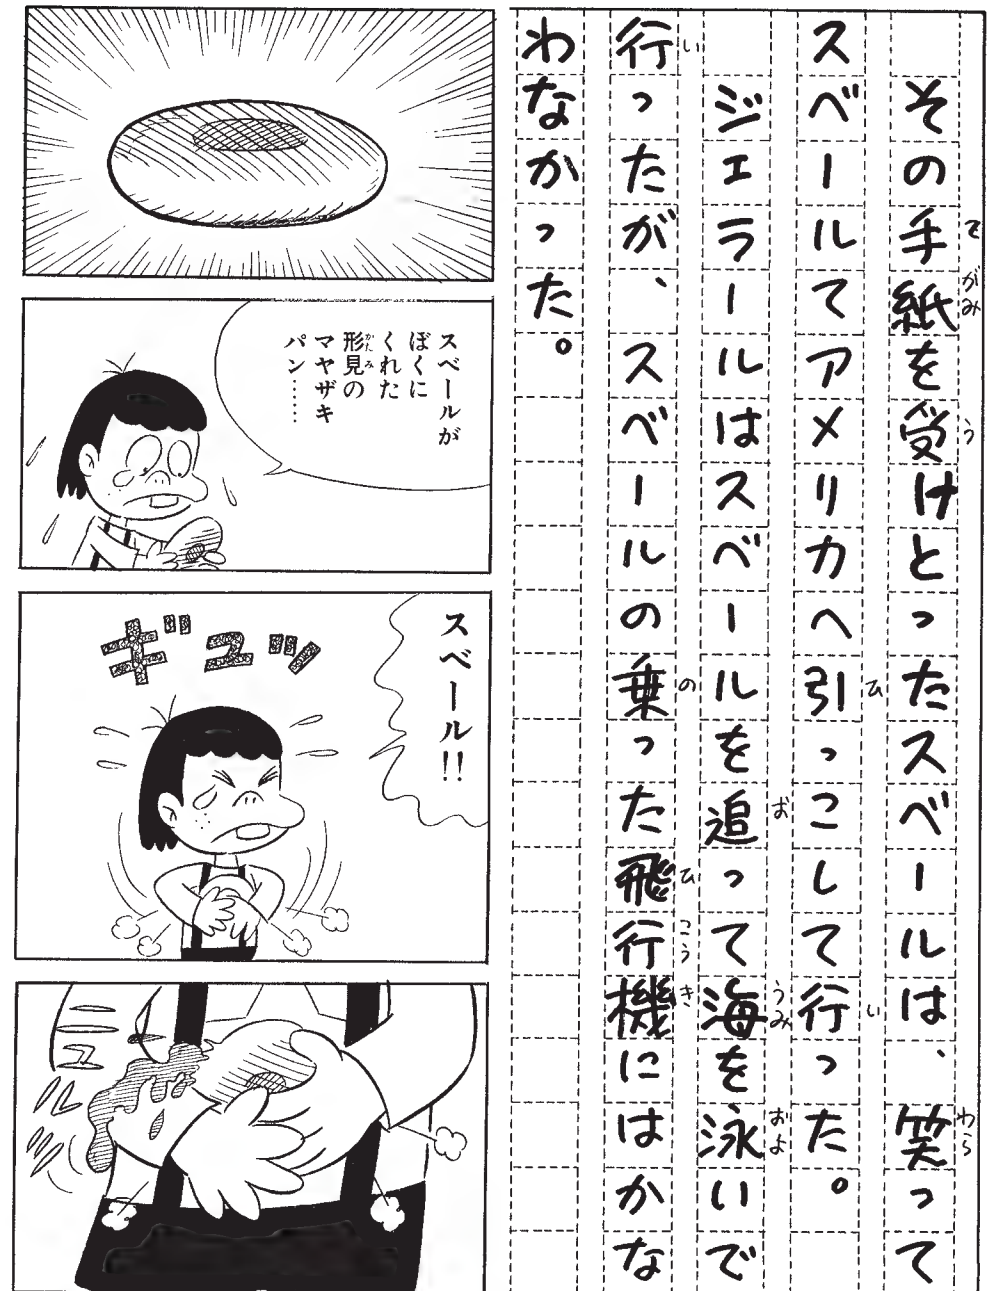 その手紙を受けとったスベールは、笑って
スベールてアメリカへ引っこして行った。
ジェラールはスベールを追って海を泳いで
行ったが、スベールの乗った飛行機にはかな
わなかった。
スベールが
ぼくに
くれた
形見の
マヤザキ
パン……
スベール!!
ギュッ